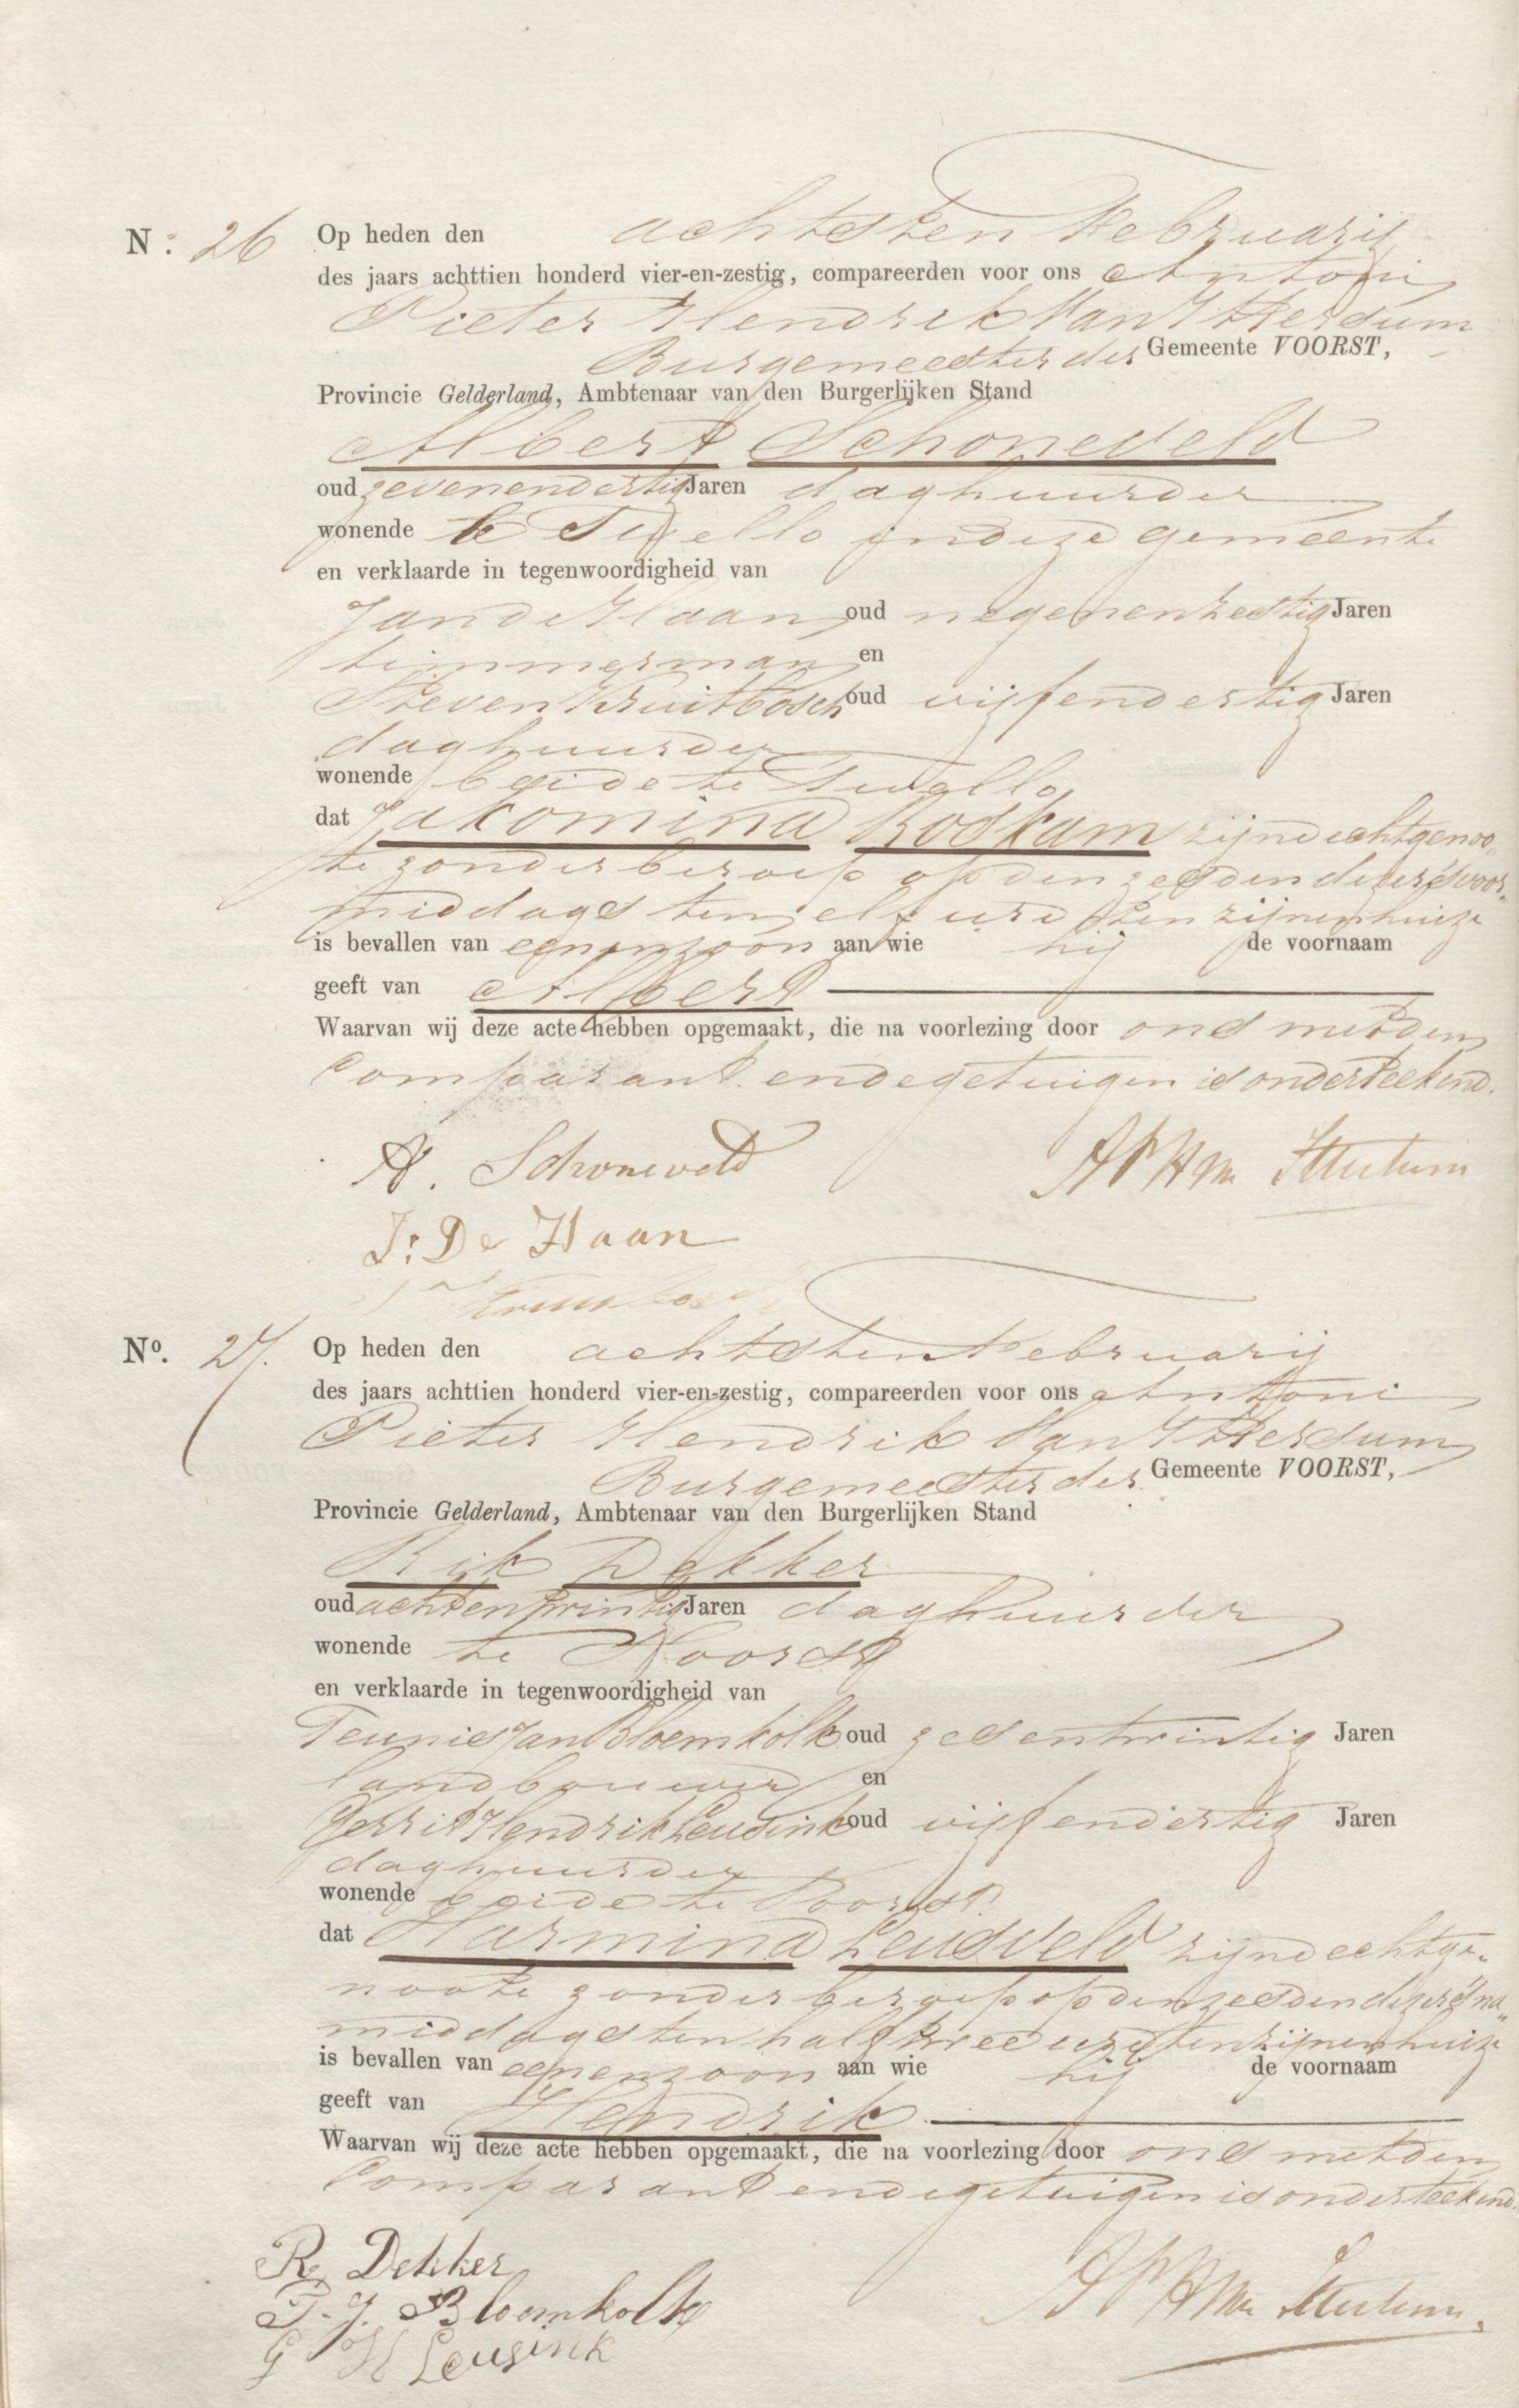 N: 26 Op heden den achtsten Februarij
des jaars achttien honderd vier-en-zestig, compareerden voor ons Antoni
Pieter Hendrik Van Ittersum
Burgemeester der Gemeente VOORST,
Provincie Gelderland, Ambtenaar van den Burgerlijken Stand
Albert Schoneveld
oud zevenendertig Jaren daghuurder
wonende te Twello in deze gemeente
en verklaarde in tegenwoordigheid van
Jan de Haan oud negenenzestig Jaren
timmerman en
Steven Kruitbosch oud vijfendertig Jaren
daghuurder
wonende beide te Twello
dat Jakomina Roskam zijne echtgenoo„
te zonder beroep op den zesden dezer 's voor„
middags ten elf ure ten zijnen huize
is bevallen van eenen zoon aan wie hij de voornaam
geeft van Albert
Waarvan wij deze acte hebben opgemaakt, die na voorlezing door ons met den
Comparant en de getuigen is onderteekend.
A. Schoneveld APHvn Ittersum
J: De Haan
S Kruitbosch
No. 27. Op heden den achtsten Februarij
des jaars achttien honderd vier-en-zestig, compareerden voor ons Antoni
Pieter Hendrik Van Ittersum
Burgemeester der Gemeente VOORST,
Provincie Gelderland, Ambtenaar van den Burgerlijken Stand
Rik Dekker
oud achtentwintig Jaren daghuurder
wonende te Voorst
en verklaarde in tegenwoordigheid van
Teunis Jan Bloemkolk oud zesentwintig Jaren
landbouwer en
Gerrit Hendrik Leusink oud vijfendertig Jaren
daghuurder
wonende beide te Voorst
dat Harmina Leusveld zijne echtge„
noote zonder beroep op den zesden dezer 's na„
middags ten half twee ure ten zijnen huize
is bevallen van eenen zoon aan wie hij de voornaam
geeft van Hendrik
Waarvan wij deze acte hebben opgemaakt, die na voorlezing door ons met den
Comparant en de getuigen is onderteekend.
R Dekker APHvn Ittersum
T. J. Bloemkolk
G H Leusink